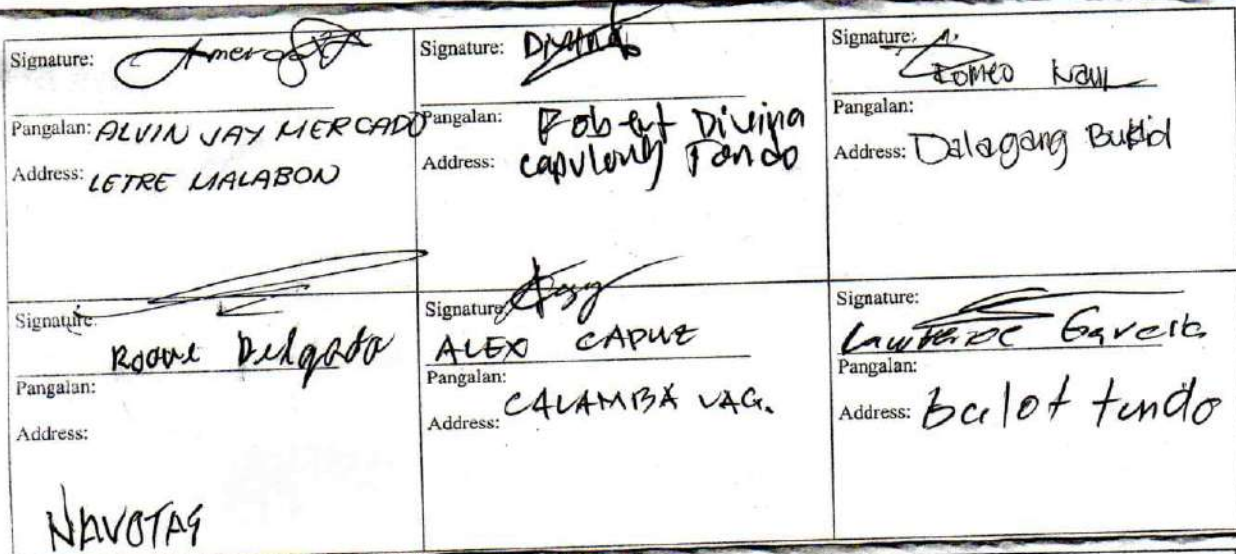 Signature: Amercado
Pangalan: ALVIN JAY MERCADO
Address: LETRE MALABON
Signature: Divina
Pangalan: Robert Divina
Address: Capulong Tondo
Signature:
Romeo
Pangalan:
Address: Dalagang Bukid
Signature:
Roque Delgado
Pangalan:
Address:
NAVOTAS
Signature:
ALEX CAPUZ
Pangalan:
Address: CALAMBA LAG.
Signature:
Lawrence
Pangalan:
Address: balot tundo